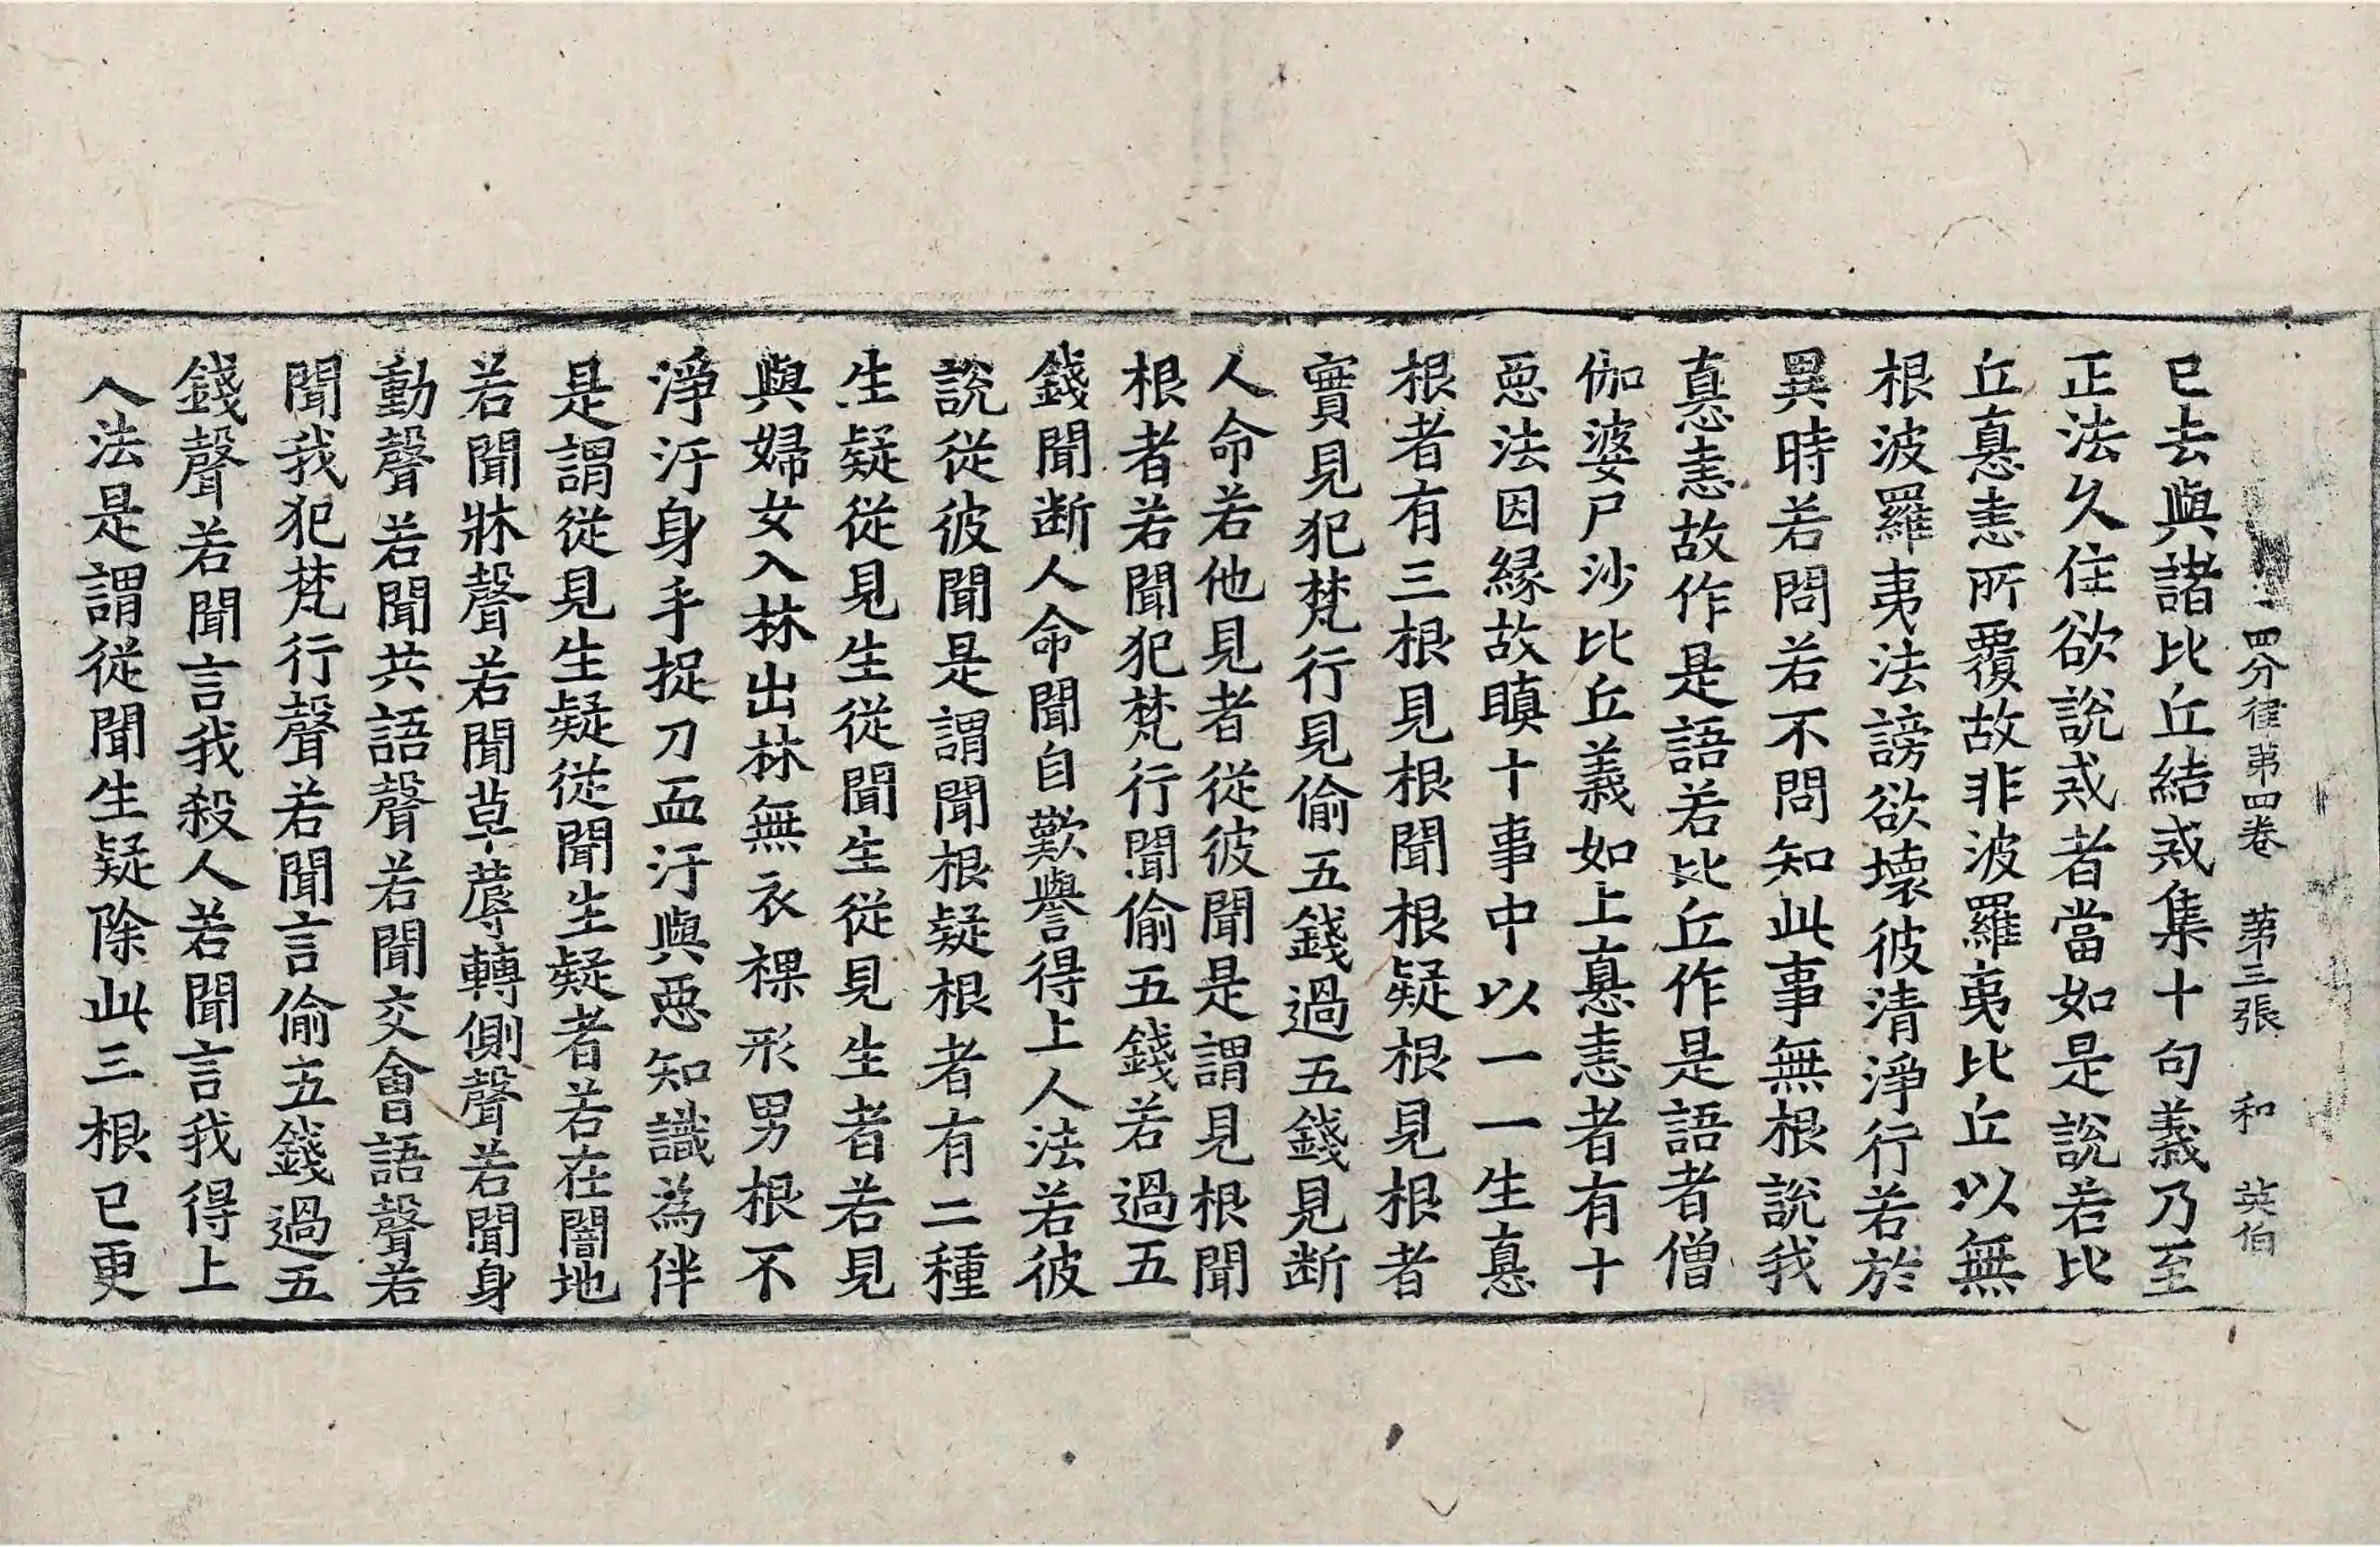 四分律第四卷　第三張　和　英伯
已去與諸比丘結戒集十句義乃至
正法久住欲說戒者當如是說若比
丘瞋恚所覆故非波羅夷比丘以無
根波羅夷法謗欲壞彼清淨行若於
異時若問若不問知此事無根說我
瞋恚故作是語若比丘作是語者僧
伽婆尸沙比丘義如上瞋恚者有十
惡法因緣故瞋十事中以一一生瞋
根者有三根見根聞根疑根見根者
實見犯梵行見偷五錢過五錢見断
人命若他見者從彼聞是謂見根聞
根者若聞犯梵行聞偷五錢若過五
錢聞断人命聞自歎譽得上人法若彼
說從彼聞是謂聞根疑根者有二種
生疑從見生從聞生從見生者若見
與婦女入林出林無衣裸形男根不
淨汙身手捉刀血汙與惡知識為伴
是謂從見生疑從聞生疑者若在闇地
若聞牀聲若聞草蓐轉側聲若聞身
動聲若聞共語聲若聞交會語聲若
聞我犯梵行聲若聞言偷五錢過五
錢聲若聞言我殺人若聞言我得上
人法是謂從聞生疑除此三根已更